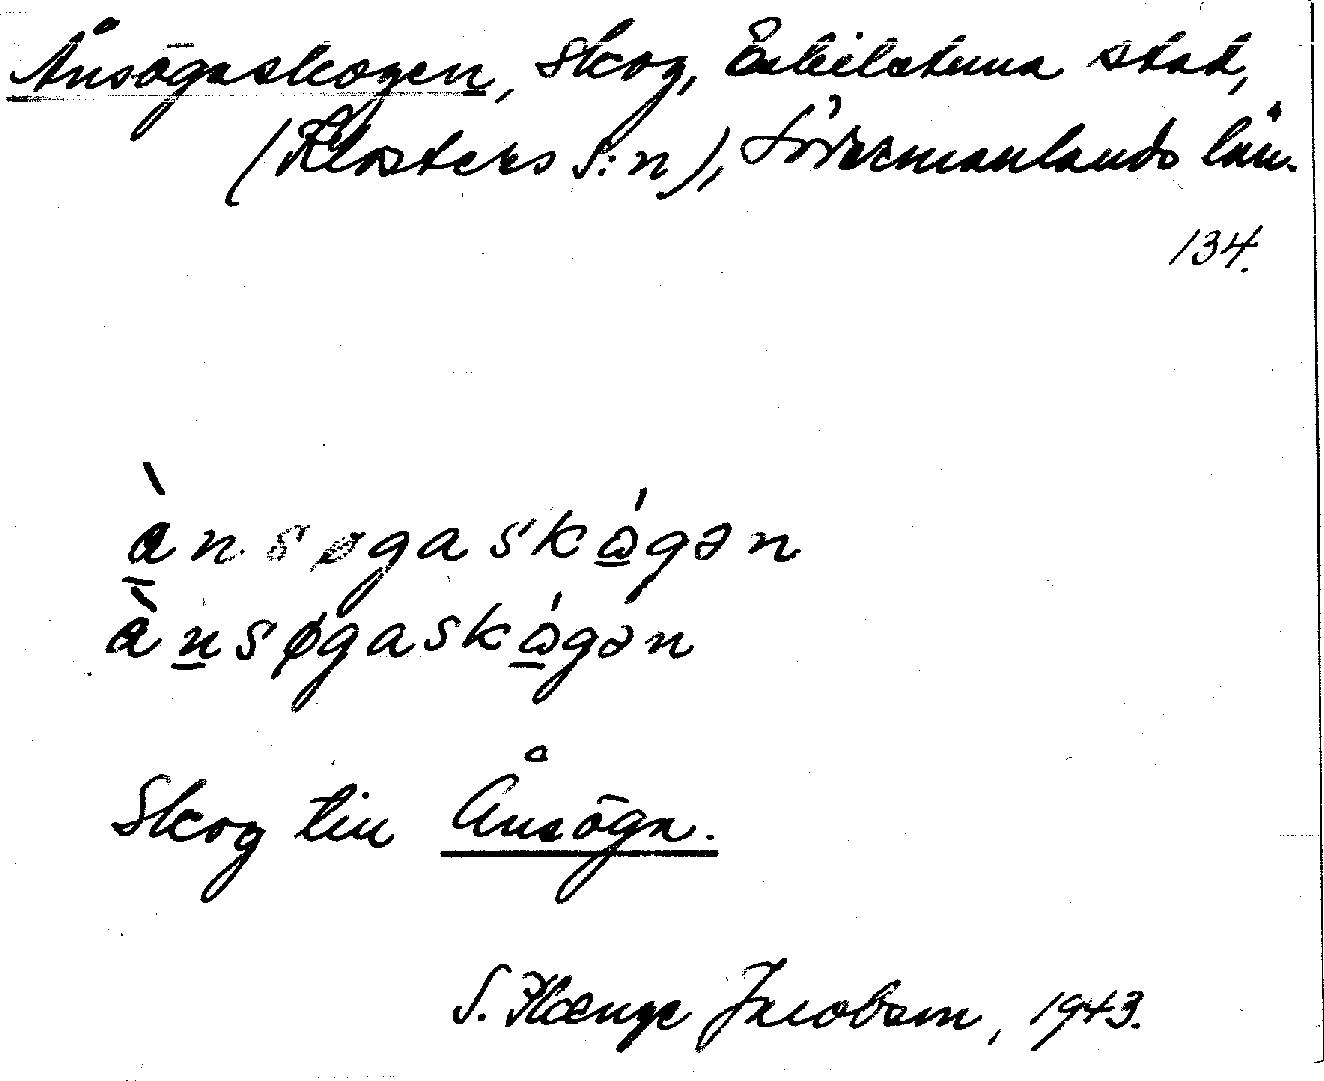 Ånsōgaskogen, Skog, Eskilstuna stad,
(Klosters s:n), Södermanlands län.
134.
ànsøgaskógən
ànsøgaskógən
Skog till Ånsōga.
S. Jacobson, 1943.